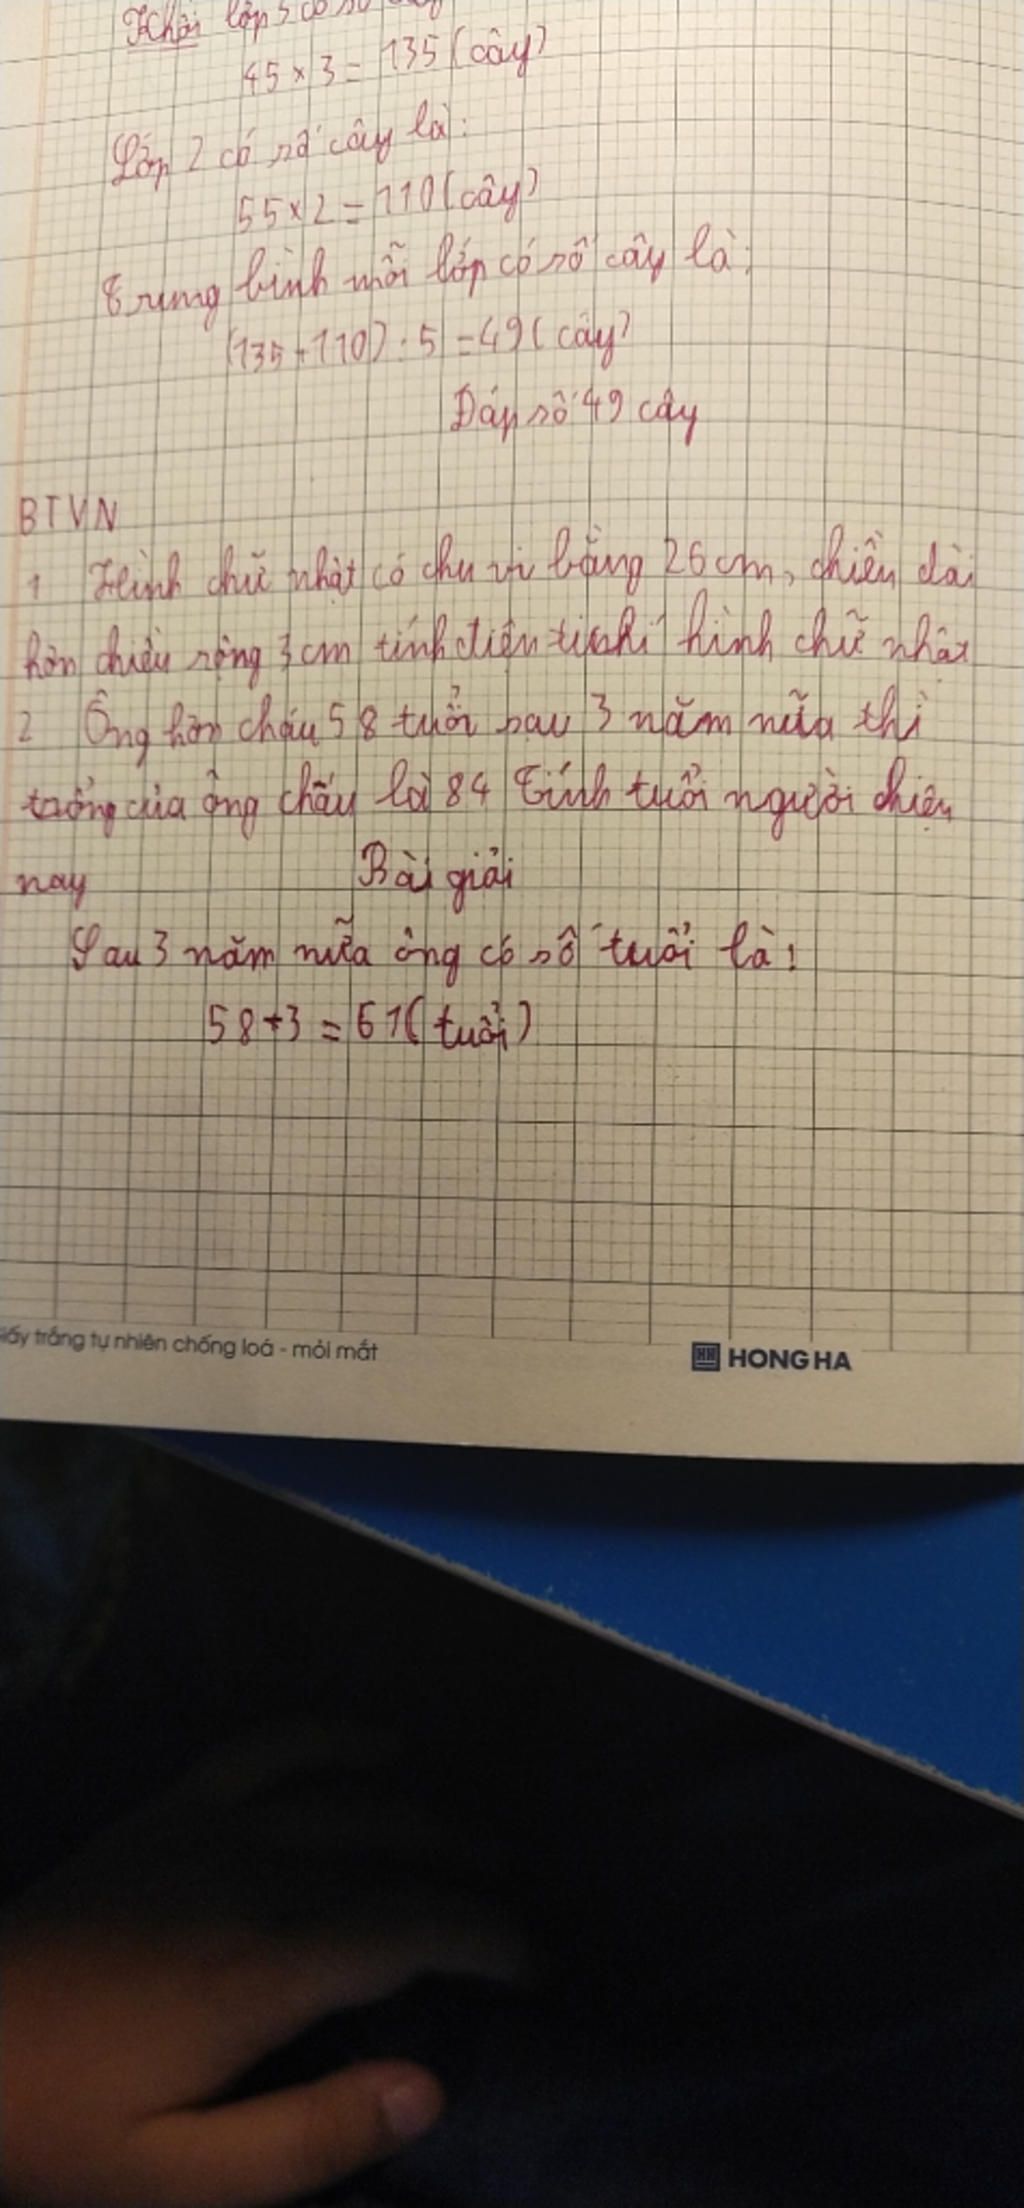 Khối lớp 3 có số
45 × 3 = 135 (cây)
Lớp 2 có số cây là:
55 × 2 = 110 (cây)
Trung bình mỗi lớp có số cây là:
(135 + 110) : 5 = 49 (cây)
Đáp số 49 cây
BTVN
1 Hình chữ nhật có chu vi bằng 26 cm, chiều dài
hơn chiều rộng 3 cm tính diện tích hình chữ nhật
2 Ông hơn cháu 58 tuổi sau 3 năm nữa thì
của ông cháu là 84 Tính tuổi người hiện
nay
Bài giải
Sau 3 năm nữa ông có số tuổi là:
58 + 3 = 61 (tuổi)
giấy trắng tự nhiên chống loá - mỏi mắt
HH HONG HA